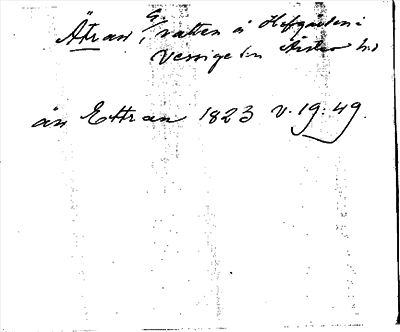 Ätran, G, vatten å Hofgården i
Vessige sn Årstad hd
ån Ettran 1823 v. 19:49.